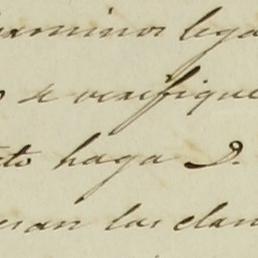 terminos lega
se verifique
haga D.
las clau